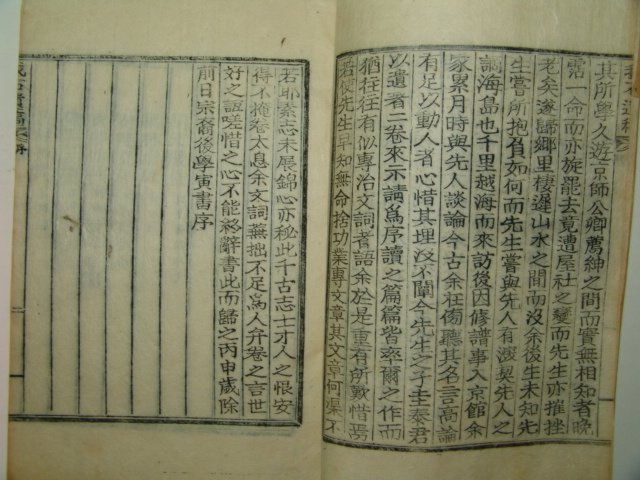 其所學久遊京師公卿薦紳之間而實無相知者晩
霑一命而亦旋罷去竟遭屋社之變而先生亦摧挫
老矣遂歸鄉里棲遲山水之間而沒余後生未知先
生嘗所抱負如何而先生嘗與先人有深契先人之
謫海島也千里越海而來訪後因修譜事入京館余
家累月時與先人談論今古余在傍聽其名言高論
有足以動人者心惜其埋沒不闡今先生之子圭泰君
以遺者二卷來示請爲序讀之篇篇皆率爾之作而
猶往往有似專治文詞者語余於是重有所歎惜焉
若使先生早知無命捨功業專文章其文章何渠不
若耶素志未展錦心亦秘此千古志士才人之恨安
得不掩卷太息余文詞蕪拙不足爲人弁卷之言世
好之誼嗟惜之心不能終辭書此而歸之丙申歲除
前日宋裔後學寅書序